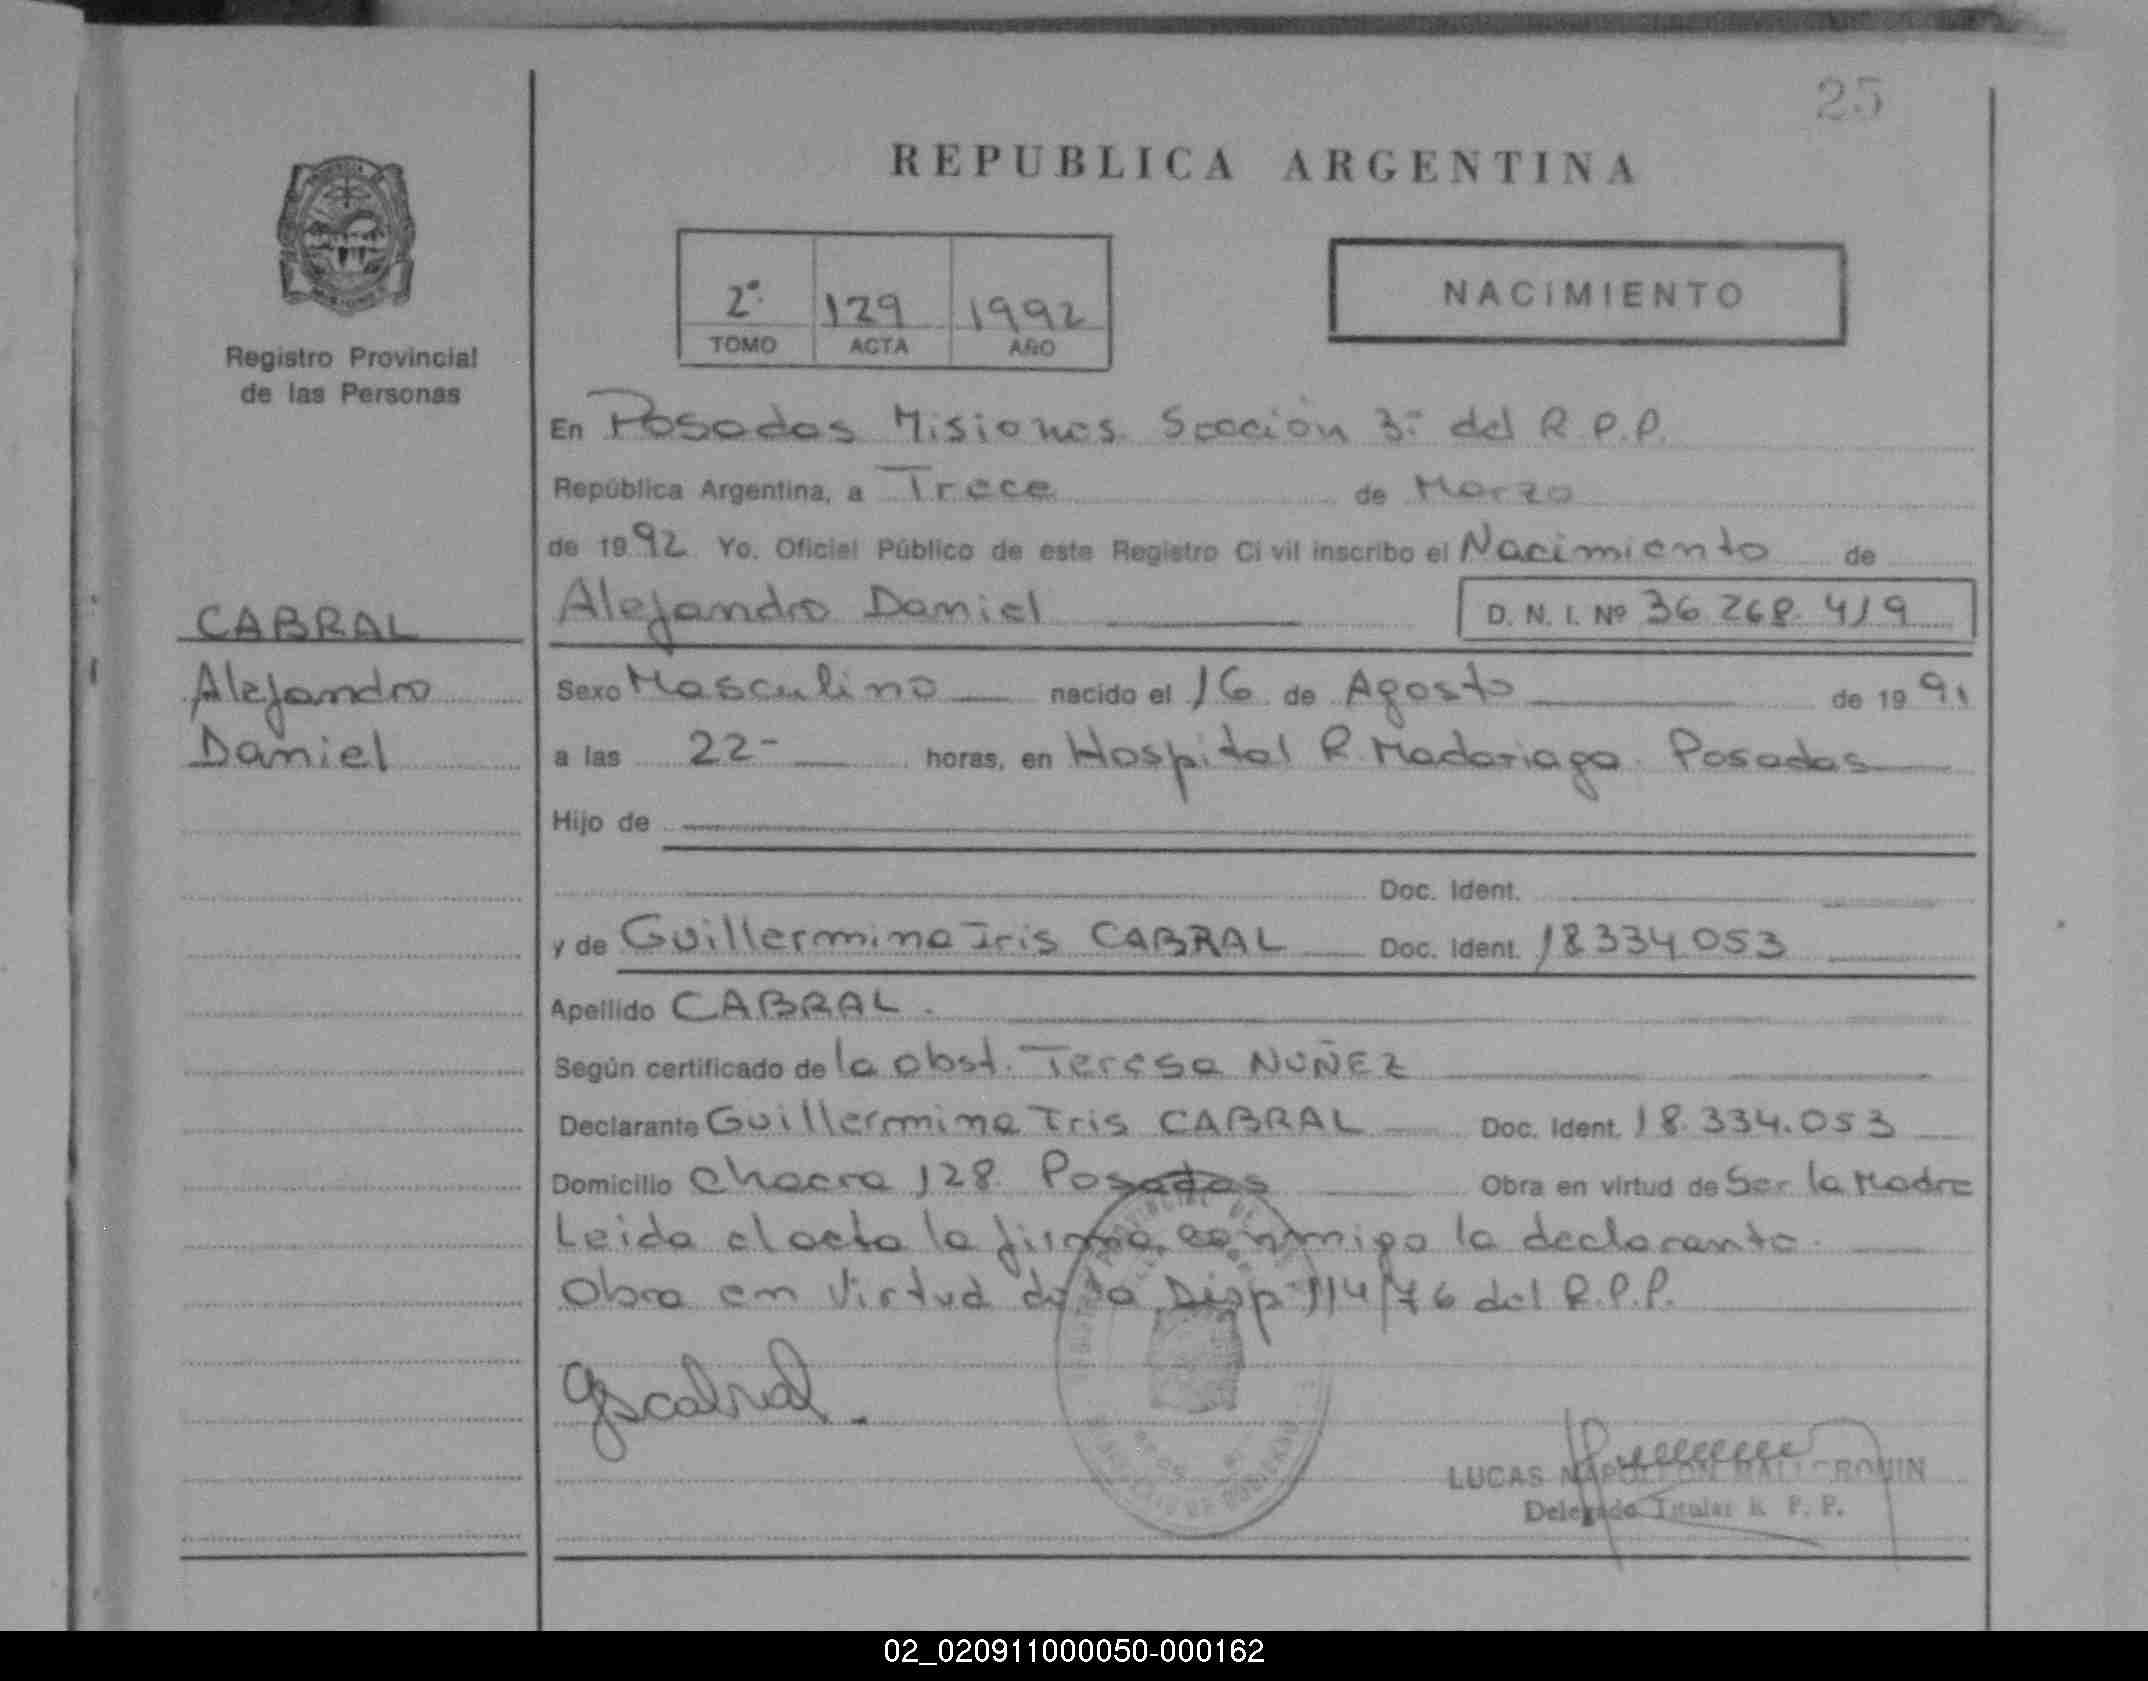 25
REPUBLICA ARGENTINA
2º 129 1992
TOMO ACTA AÑO
NACIMIENTO
Registro Provincial
de las Personas
En Posadas Misiones. Sección 3ª del R.P.P.
República Argentina, a Trece de Marzo
de 1992 Yo, Oficial Público de este Registro Civil inscribo el Nacimiento de
CABRAL
Alejandro Daniel D. N. I. Nº 36.268.419
Alejandro
Sexo Masculino nacido el 16 de Agosto de 1991
Daniel
a las 22- horas, en Hospital R. Madariaga. Posadas
Hijo de
Doc. Ident.
y de Guillermina Iris CABRAL Doc. Ident. 18334.053
Apellido CABRAL.
Según certificado de la obst. Teresa NUÑEZ
Declarante Guillermina Iris CABRAL Doc. Ident. 18.334.053
Domicilio Chacra 128. Posadas Obra en virtud de Ser la Madre
Leida el acta la firma conmigo la declarante.
Obra en Virtud de la Disp 114/76 del R.P.P.
LUCAS NAPOLEON
Delegado Titular R. P. P.
02_020911000050-000162